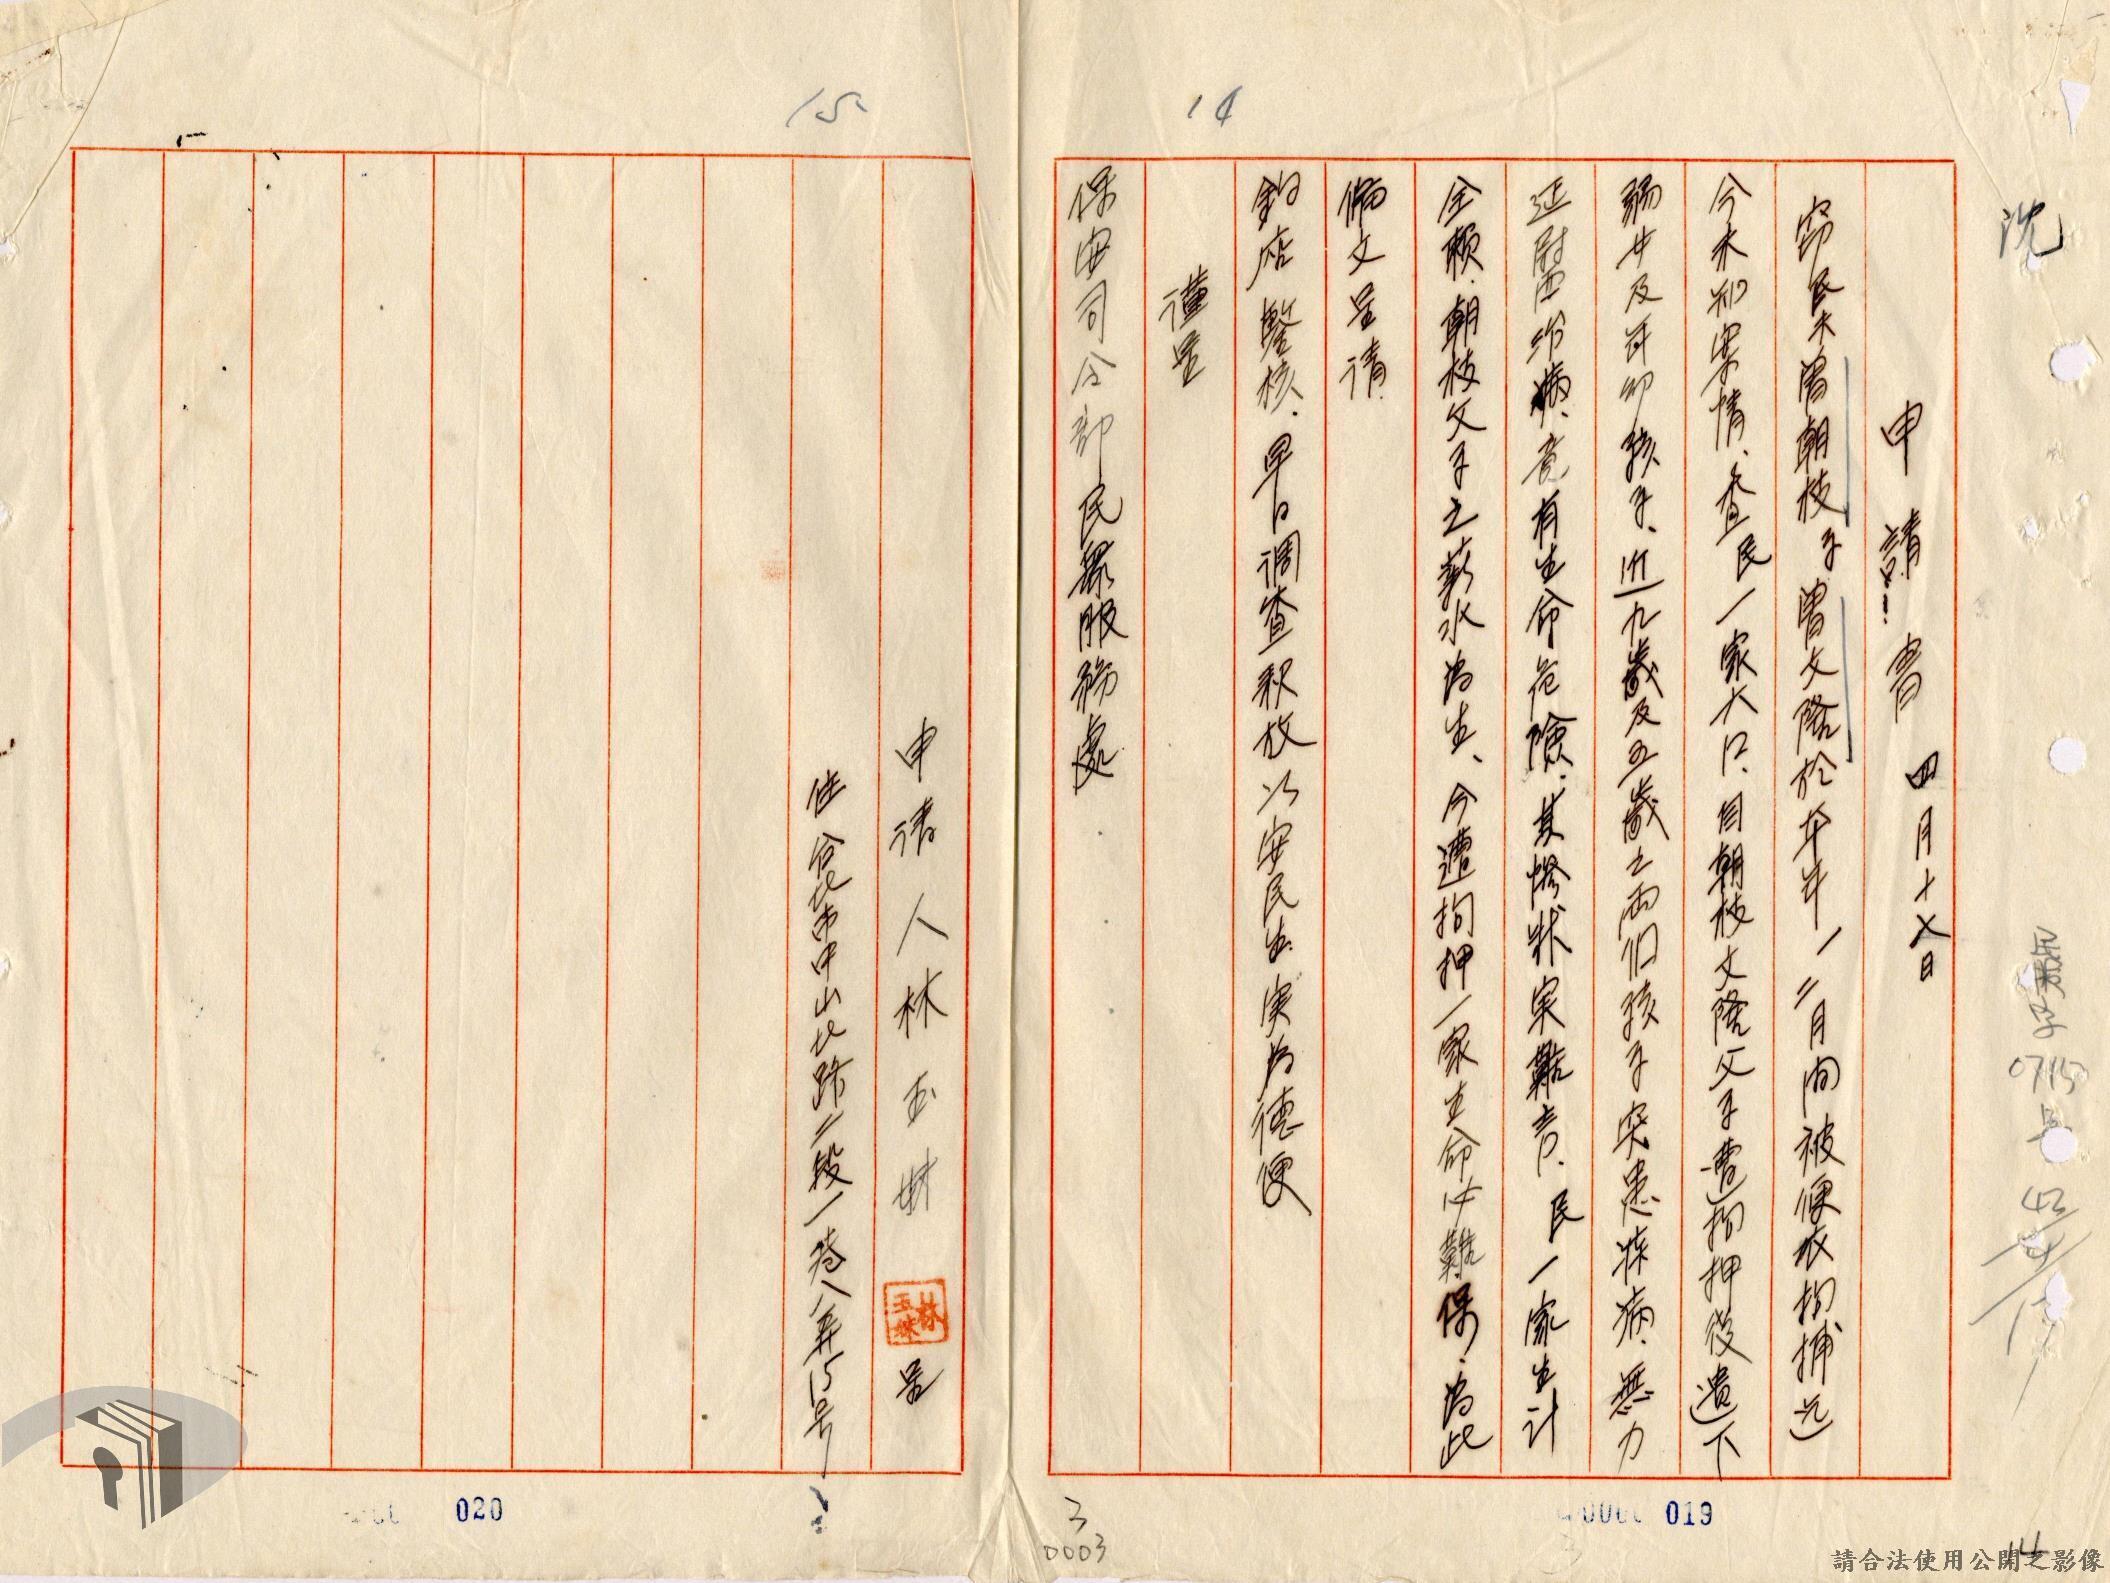 沈
申請書 四月十七日
窃民夫曾朝枝子曾文隆於本年一、二月間被便衣拘捕迄
今未知案情、查民一家六口、自朝枝文隆父子遭拘押後遺下
弱女及幼孩子、近九歲及五歲之两们孩子突患疾病、無力
延醫給病、竟有生命危險、其慘狀実難言、民一家生計
全賴朝枝父子之薪水為生、今遭拘押一家生命必難保、為此
備文呈請
鈞府鑒核、早日調查釈放以安民生実為德便
謹呈
保安司令部民眾服務處
申請人林玉妹 呈
住台北市中山北路二段一巷八弄15号
林玉妹
14
15
0715
42
3
0003
019
020
14
請合法使用公開之影像